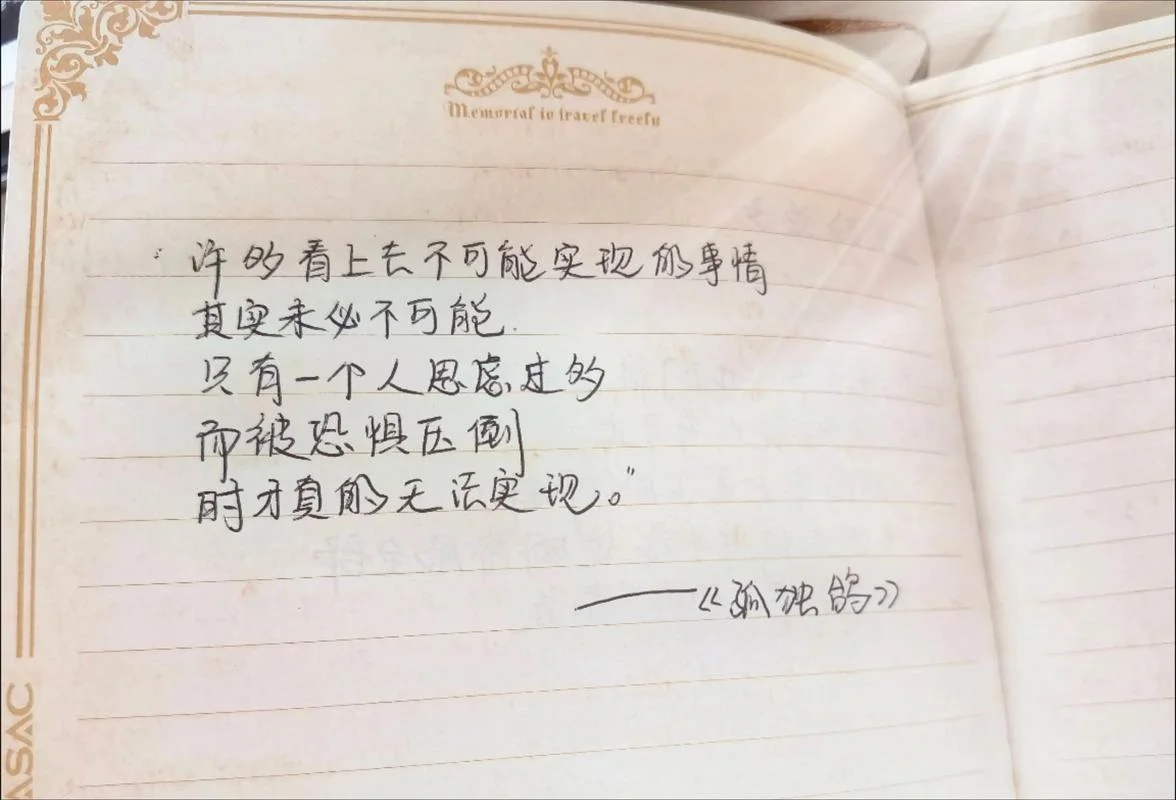 Memorial to travel freely
“许多看上去不可能实现的事情
其实未必不可能.
只有一个人思虑过多
而被恐惧压倒
时才真的无法实现。”
——《孤独鸽》
ASAC